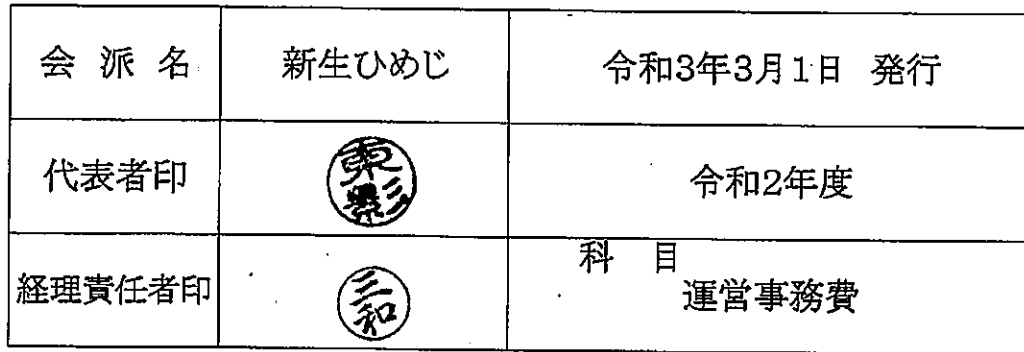 会派名 新生ひめじ 令和3年3月1日 発行
代表者印 令和2年度
科目
経理責任者印 三和 運営事務費